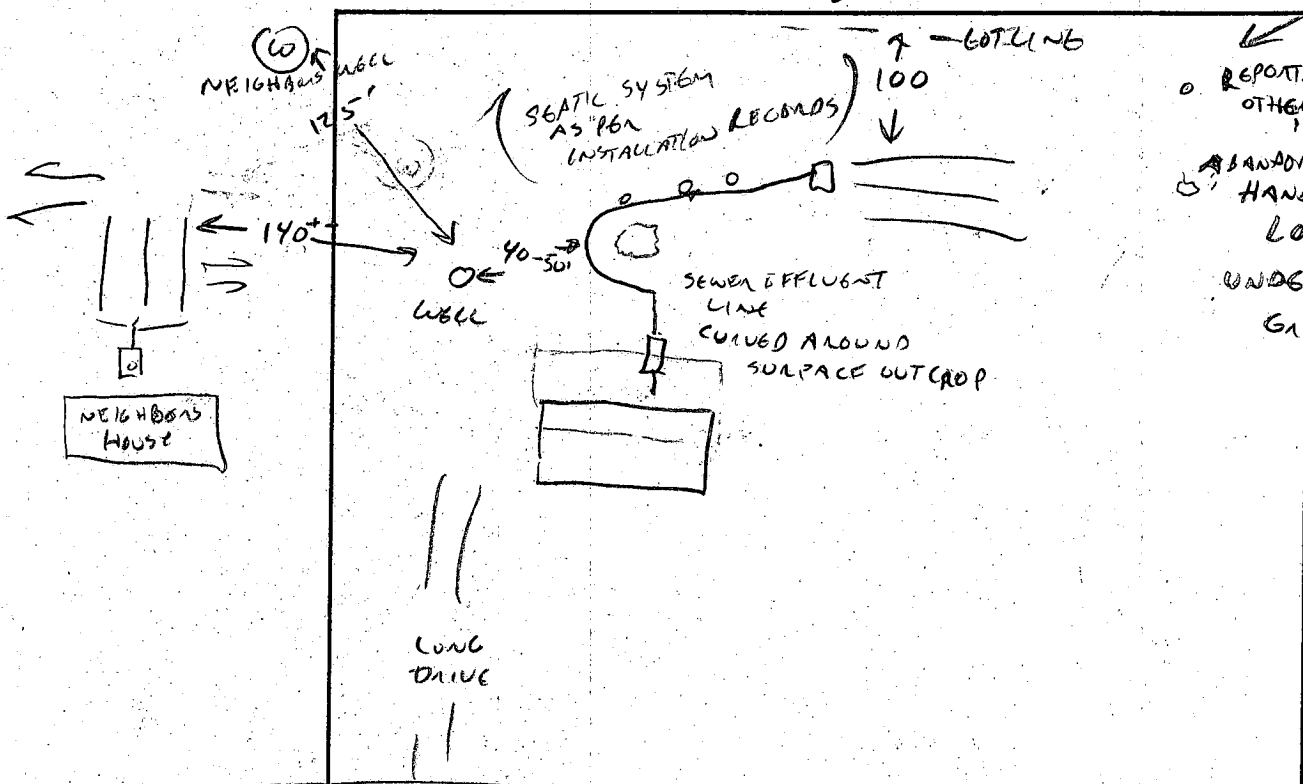 NEIGHBORS WELL
125'
SEPTIC SYSTEM
AS PER
INSTALLATION RECORDS
LOTLINE
100
REPORT
OTHE
ABANDON
HAN
LO
UNDE
GR
140+
40-50'
WELL
SEWER EFFLUENT
LINE
CURVED AROUND
SURFACE OUTCROP
NEIGHBORS
HOUSE
LONG
DRIVE